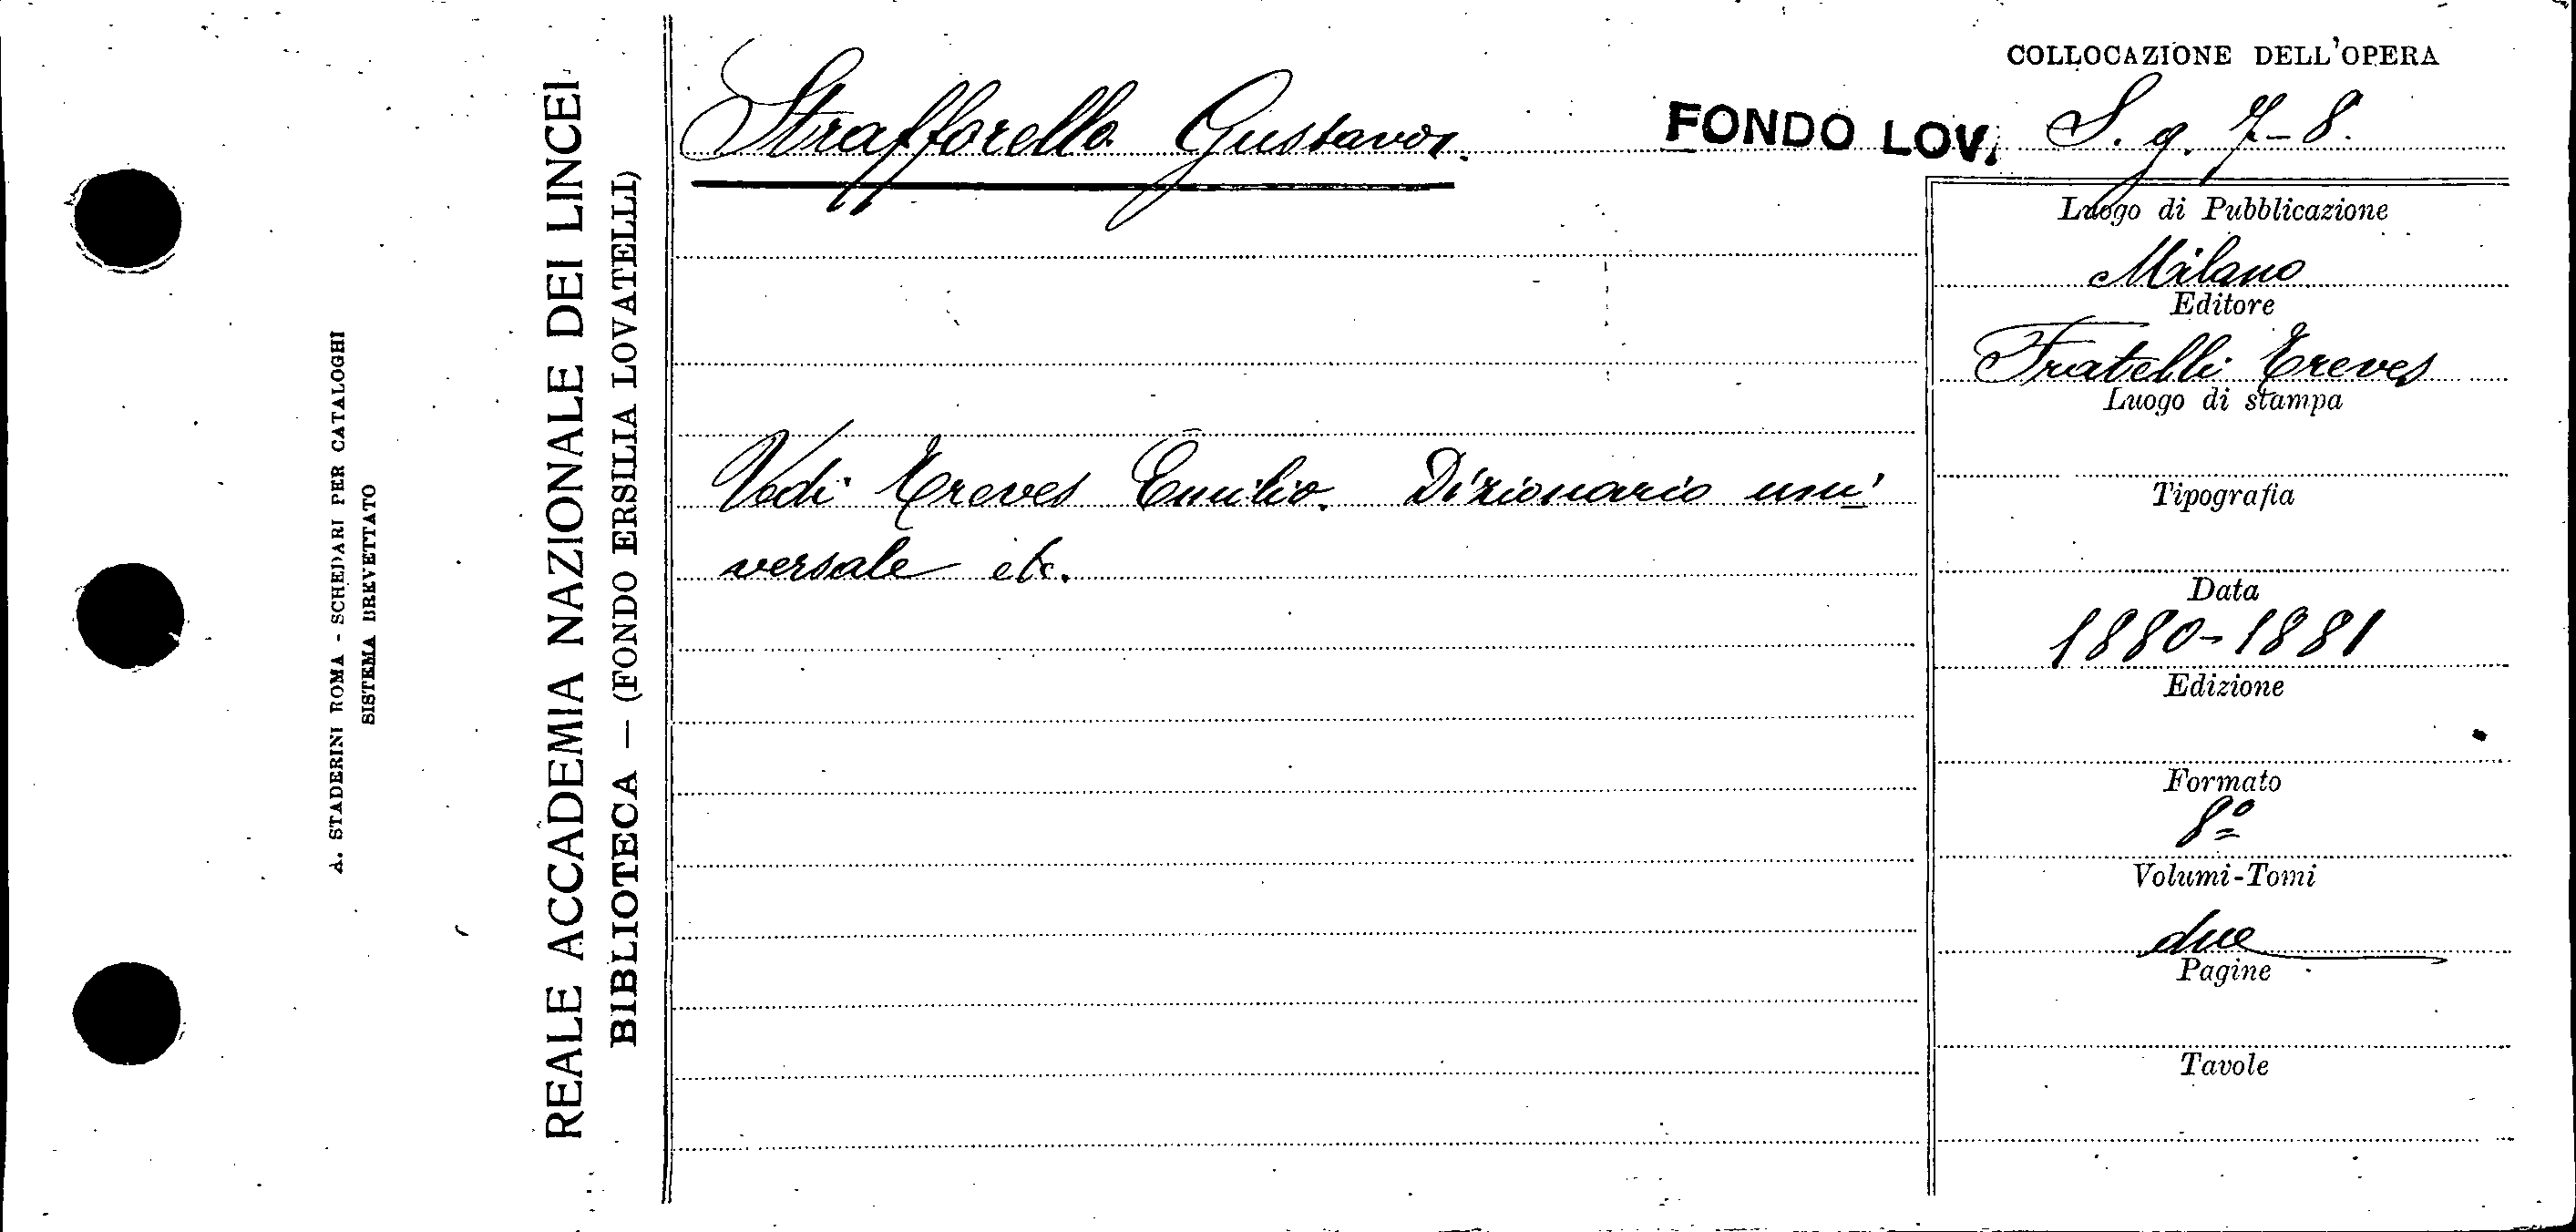 COLLOCAZIONE DELL'OPERA
Strafforello Gustavo.
FONDO LOV. S. g. 7-8.
Luogo di Pubblicazione
Milano
Editore
Fratelli Treves
Luogo di stampa
Tipografia
Data
1880-1881
Edizione
Formato
8º
Volumi-Tomi
due
Pagine
Tavole
Vedi Treves Emilio. Dizionario uni-
versale etc.
REALE ACCADEMIA NAZIONALE DEI LINCEI
BIBLIOTECA — (FONDO ERSILIA LOVATELLI)
A. STADERINI ROMA - SCHEDARI PER CATALOGHI
SISTEMA BREVETTATO